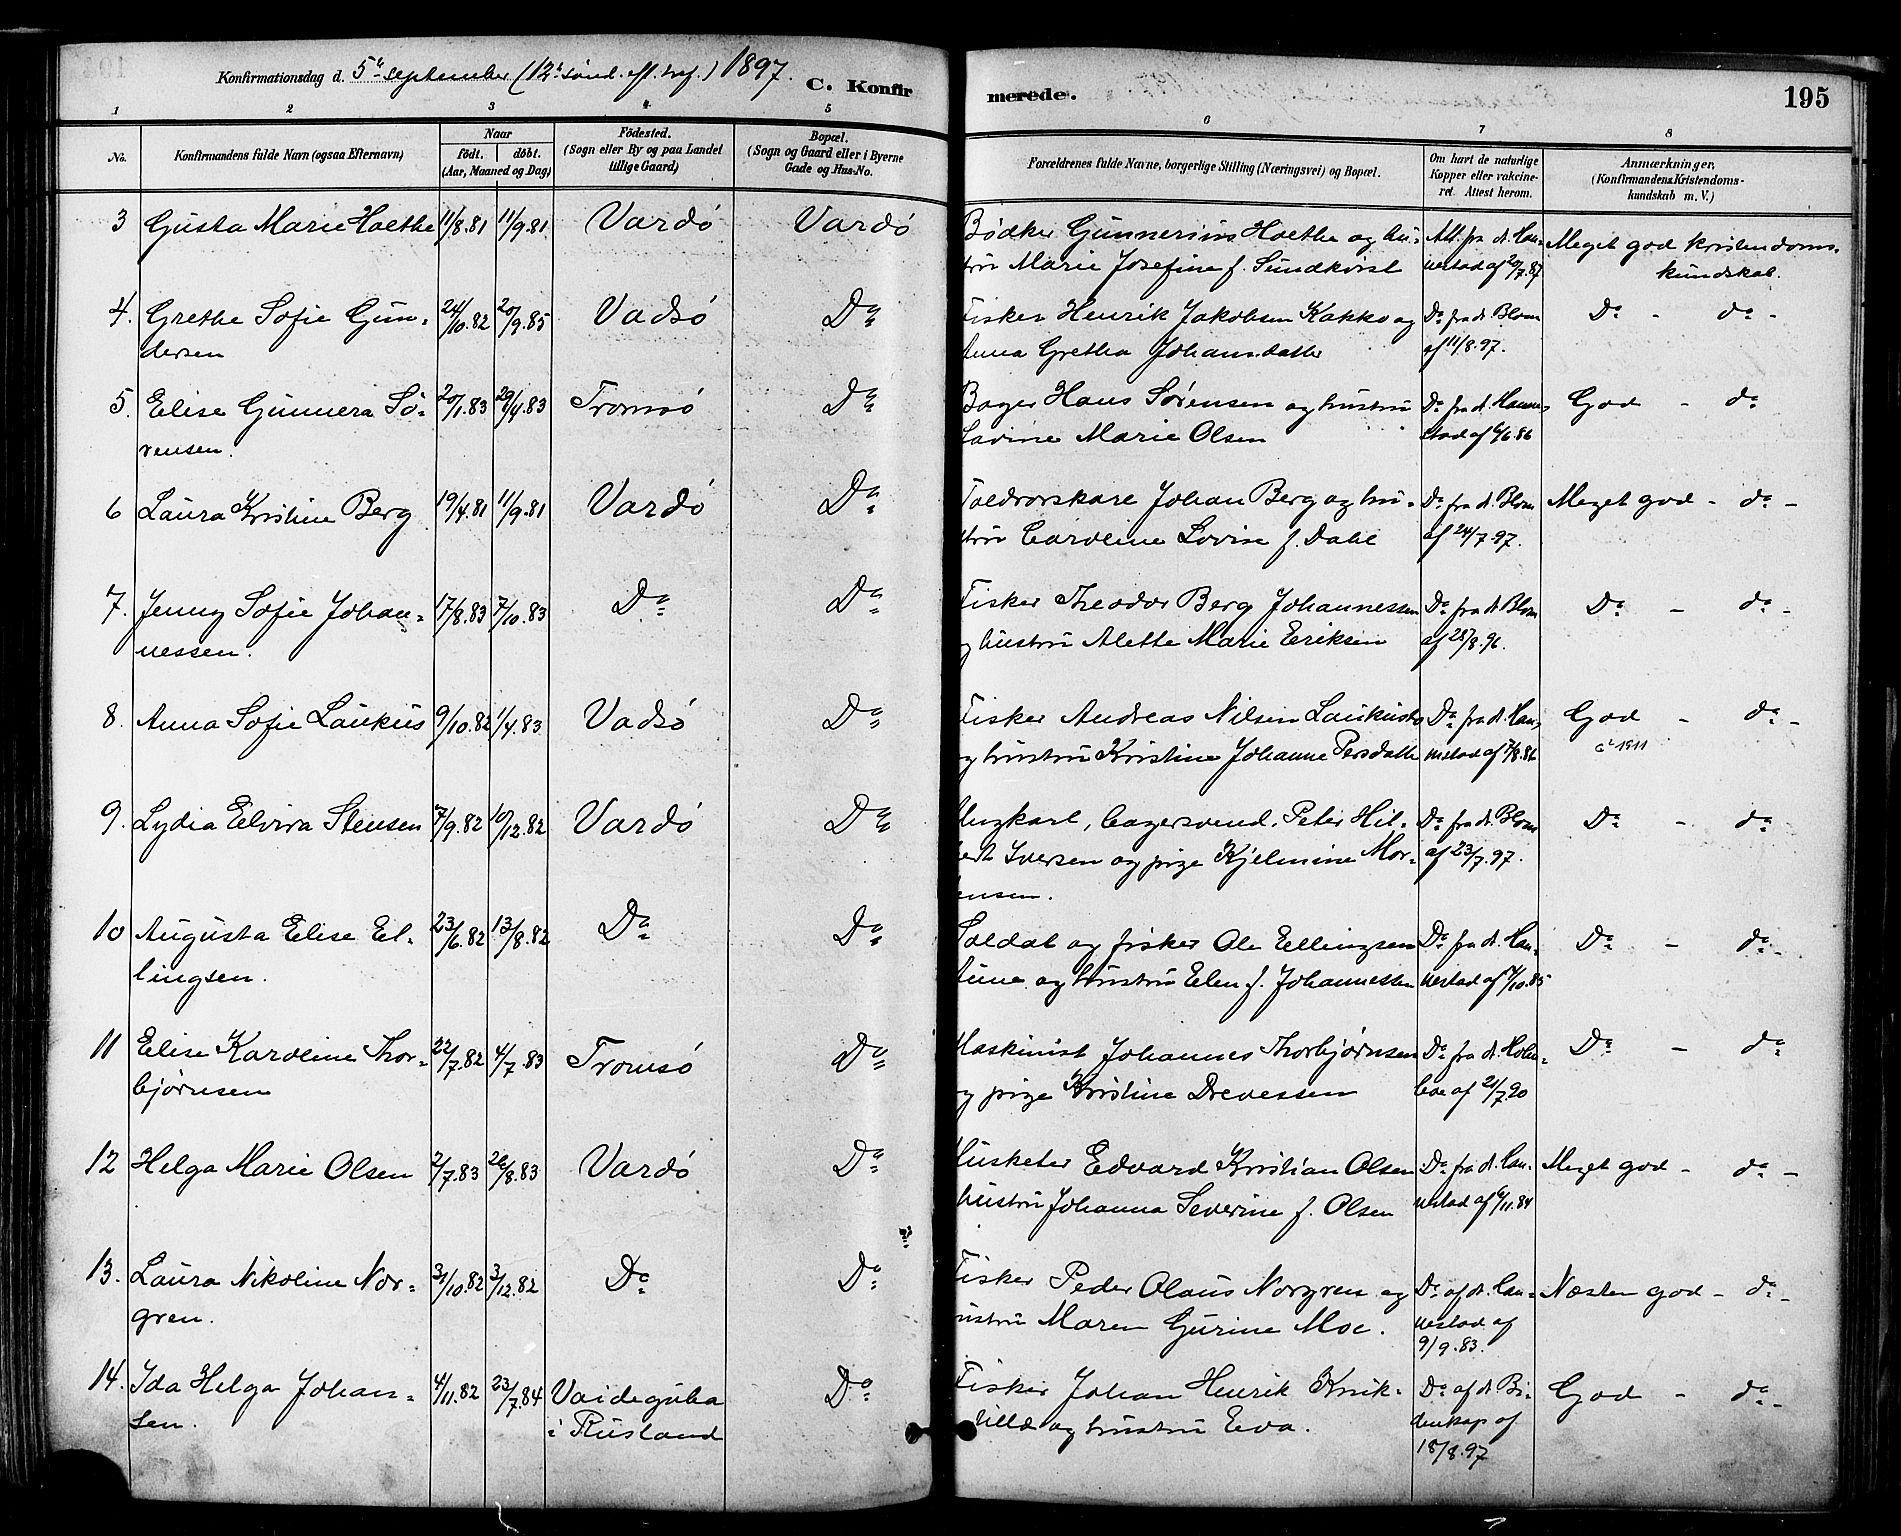 Konfirmationsdag d. 5te september (12te sønd. eft. tref.) 1897.
C. Konfirmerede.
195
1 2 3 4 5 6 7 8
No.
Konfirmandens fulde Navn (ogsaa Efternavn)
Naar
födt. döbt.
(Aar, Maaned og Dag)
Födested.
(Sogn eller By og paa Landet
tillige Gaard)
Bopæl.
(Sogn og Gaard eller i Byerne
Gade og Hus-No.
Forældrenes fulde Navne, borgerlige Stilling (Næringsvei) og Bopæl.
Om havt de naturlige
Kopper eller vakcine-
ret. Attest herom.
Anmærkninger,
(Konfirmandens Kristendoms-
kundskab m. V.)
3 Gusta Marie Hoethe 11/8.81 11/9.81 Vardö Vardö Bødker Gunnerius Hoethe og hu- Att. fra dr. Han- Meget god kristendoms-
stru Marie Josefine f. Sundkvist nestad af 20/7.87 kundskab.
4. Grethe Sofie Gun- 24/10.82 20/9.85 Vadsö Do Fisker Henrik Jakobsen Kakko og Do fra dr. Blom Do - do -
dersen Anna Gretha Johansdatter af 11/8.97.
5. Elise Gunnera Sö- 20/1.83 29/4.83 Tromsö Do Bager Hans Sørensen og hustru Do fra dr. Hanne- God - do
rensen. Lavine Marie Olsen stad af 6/6.86
6 Laura Kristine Berg 19/4.81 11/9.81 Vardö Do Toldrorskare Johan Berg og hu- Do fra dr. Blom Meget god - do -
stru Caroline Lovise f. Dahl af 24/7.97.
7. Jenny Sofie Johan- 17/8.83 7/10.83 Do Do Fisker Theodor Berg Johannessen Do fra dr. Blom Do - do -
nessen. og hustru Alette Marie Eriksen af 28/8.96.
8. Anna Sofie Laukus 9/10.82 1/4.83 Vadsö Do Fisker Andreas Nilsen Laukusto Do fra dr. Han- God - do -
og hustru Kristine Johanne Persdatter nestad af 7/8.86 1911
9. Lydia Elvira Stensen 7/9.82 10/12.82 Vardö Do Ungkarl, bagersvend. Peter Hil- Do fra dr. Blom Do - do
bert Iversen og pige Hjelmine Mor- af 23/7.97.
tensen.
10 Augusta Elise El- 23/6.82 13/8.82 Do Do Soldat og fisker Ole Ellingsen Do fra dr. Han- Do - do -
lingsen. og hustru Elen f. Johannessen nestad af 7/10.85
11 Elise Karoline Thor- 22/7.82 4/7.83 Tromsö Do Maskinist Johannes Thorbjørnsen Do fra dr. Holm- Do - do
bjørnsen og pige Kristine Drevessen boe af 21/7.90
12 Helga Marie Olsen 2/7.83 26/8.83 Vardö Do Musketer Edvard Kristian Olsen Do fra dr. Han- Meget god - do -
hustru Johanna Severine f. Olsen nestad af 6/11.84
13. Laura Nikoline Nor- 31/10.82 3/12.82 Do Do Fisker Peder Olaus Norgren og Do af dr. Han- Næsten god - do -
gren. hustru Maren Gurine Moe. nestad af
9/9.83.
14. Ida Helga Johan- 4/11.82 23/7.84 Vaideguba Do Fisker Johan Henrik Do af dr. Bi- God - do -
sen. i Rusland og hustru Eva. denkap af
18/8.97